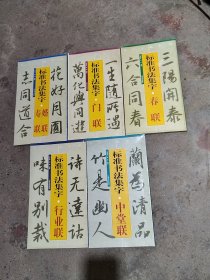 花好月圓
标准书法集字·婚联
寿联
志同道合
一生隨所遇
标准书法集字·门联
萬化與同遊
三陽開泰
标准书法集字·春联
六合同春
詩无遠詁
标准书法集字·行业联
味有别裁
蘭爲清品
标准书法集字·中堂联
竹是幽人